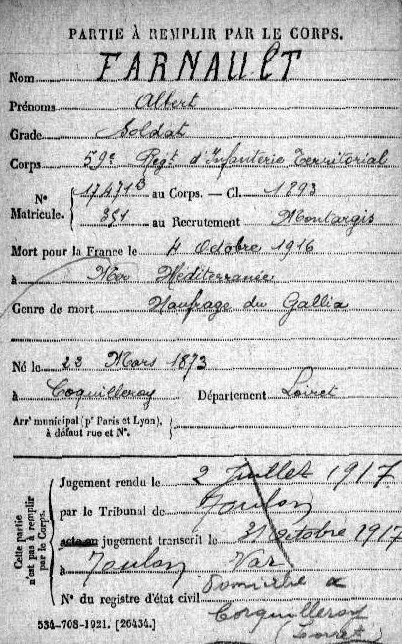 PARTIE À REMPLIR PAR LE CORPS.
Nom FARNAULT
Prénoms Albert
Grade Soldat
Corps 59e Regt d'Infanterie Territorial
N° Matricule. 17471B au Corps. — Cl. 1893
351 au Recrutement Montargis
Mort pour la France le 4 Octobre 1916
à Mer Méditerranée
Genre de mort Naufrage du Gallia
Né le 23 Mars 1873
à Coquilleroy Département Loiret
Arrt municipal (pr Paris et Lyon), à défaut rue et N°.
Cette partie n'est pas à remplir par le Corps.
Jugement rendu le 2 Juillet 1917
par le Tribunal de Toulon
acte ou jugement transcrit le 31 octobre 1917
à Toulon Var
N° du registre d'état civil Domicilié à
Corquilleroy
(Loiret)
534-708-1921. [26434.]